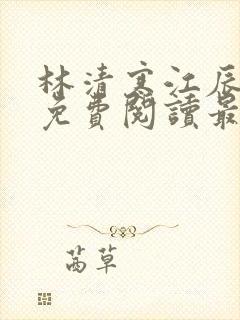 林清寒江辰
免費閱讀最
茜草